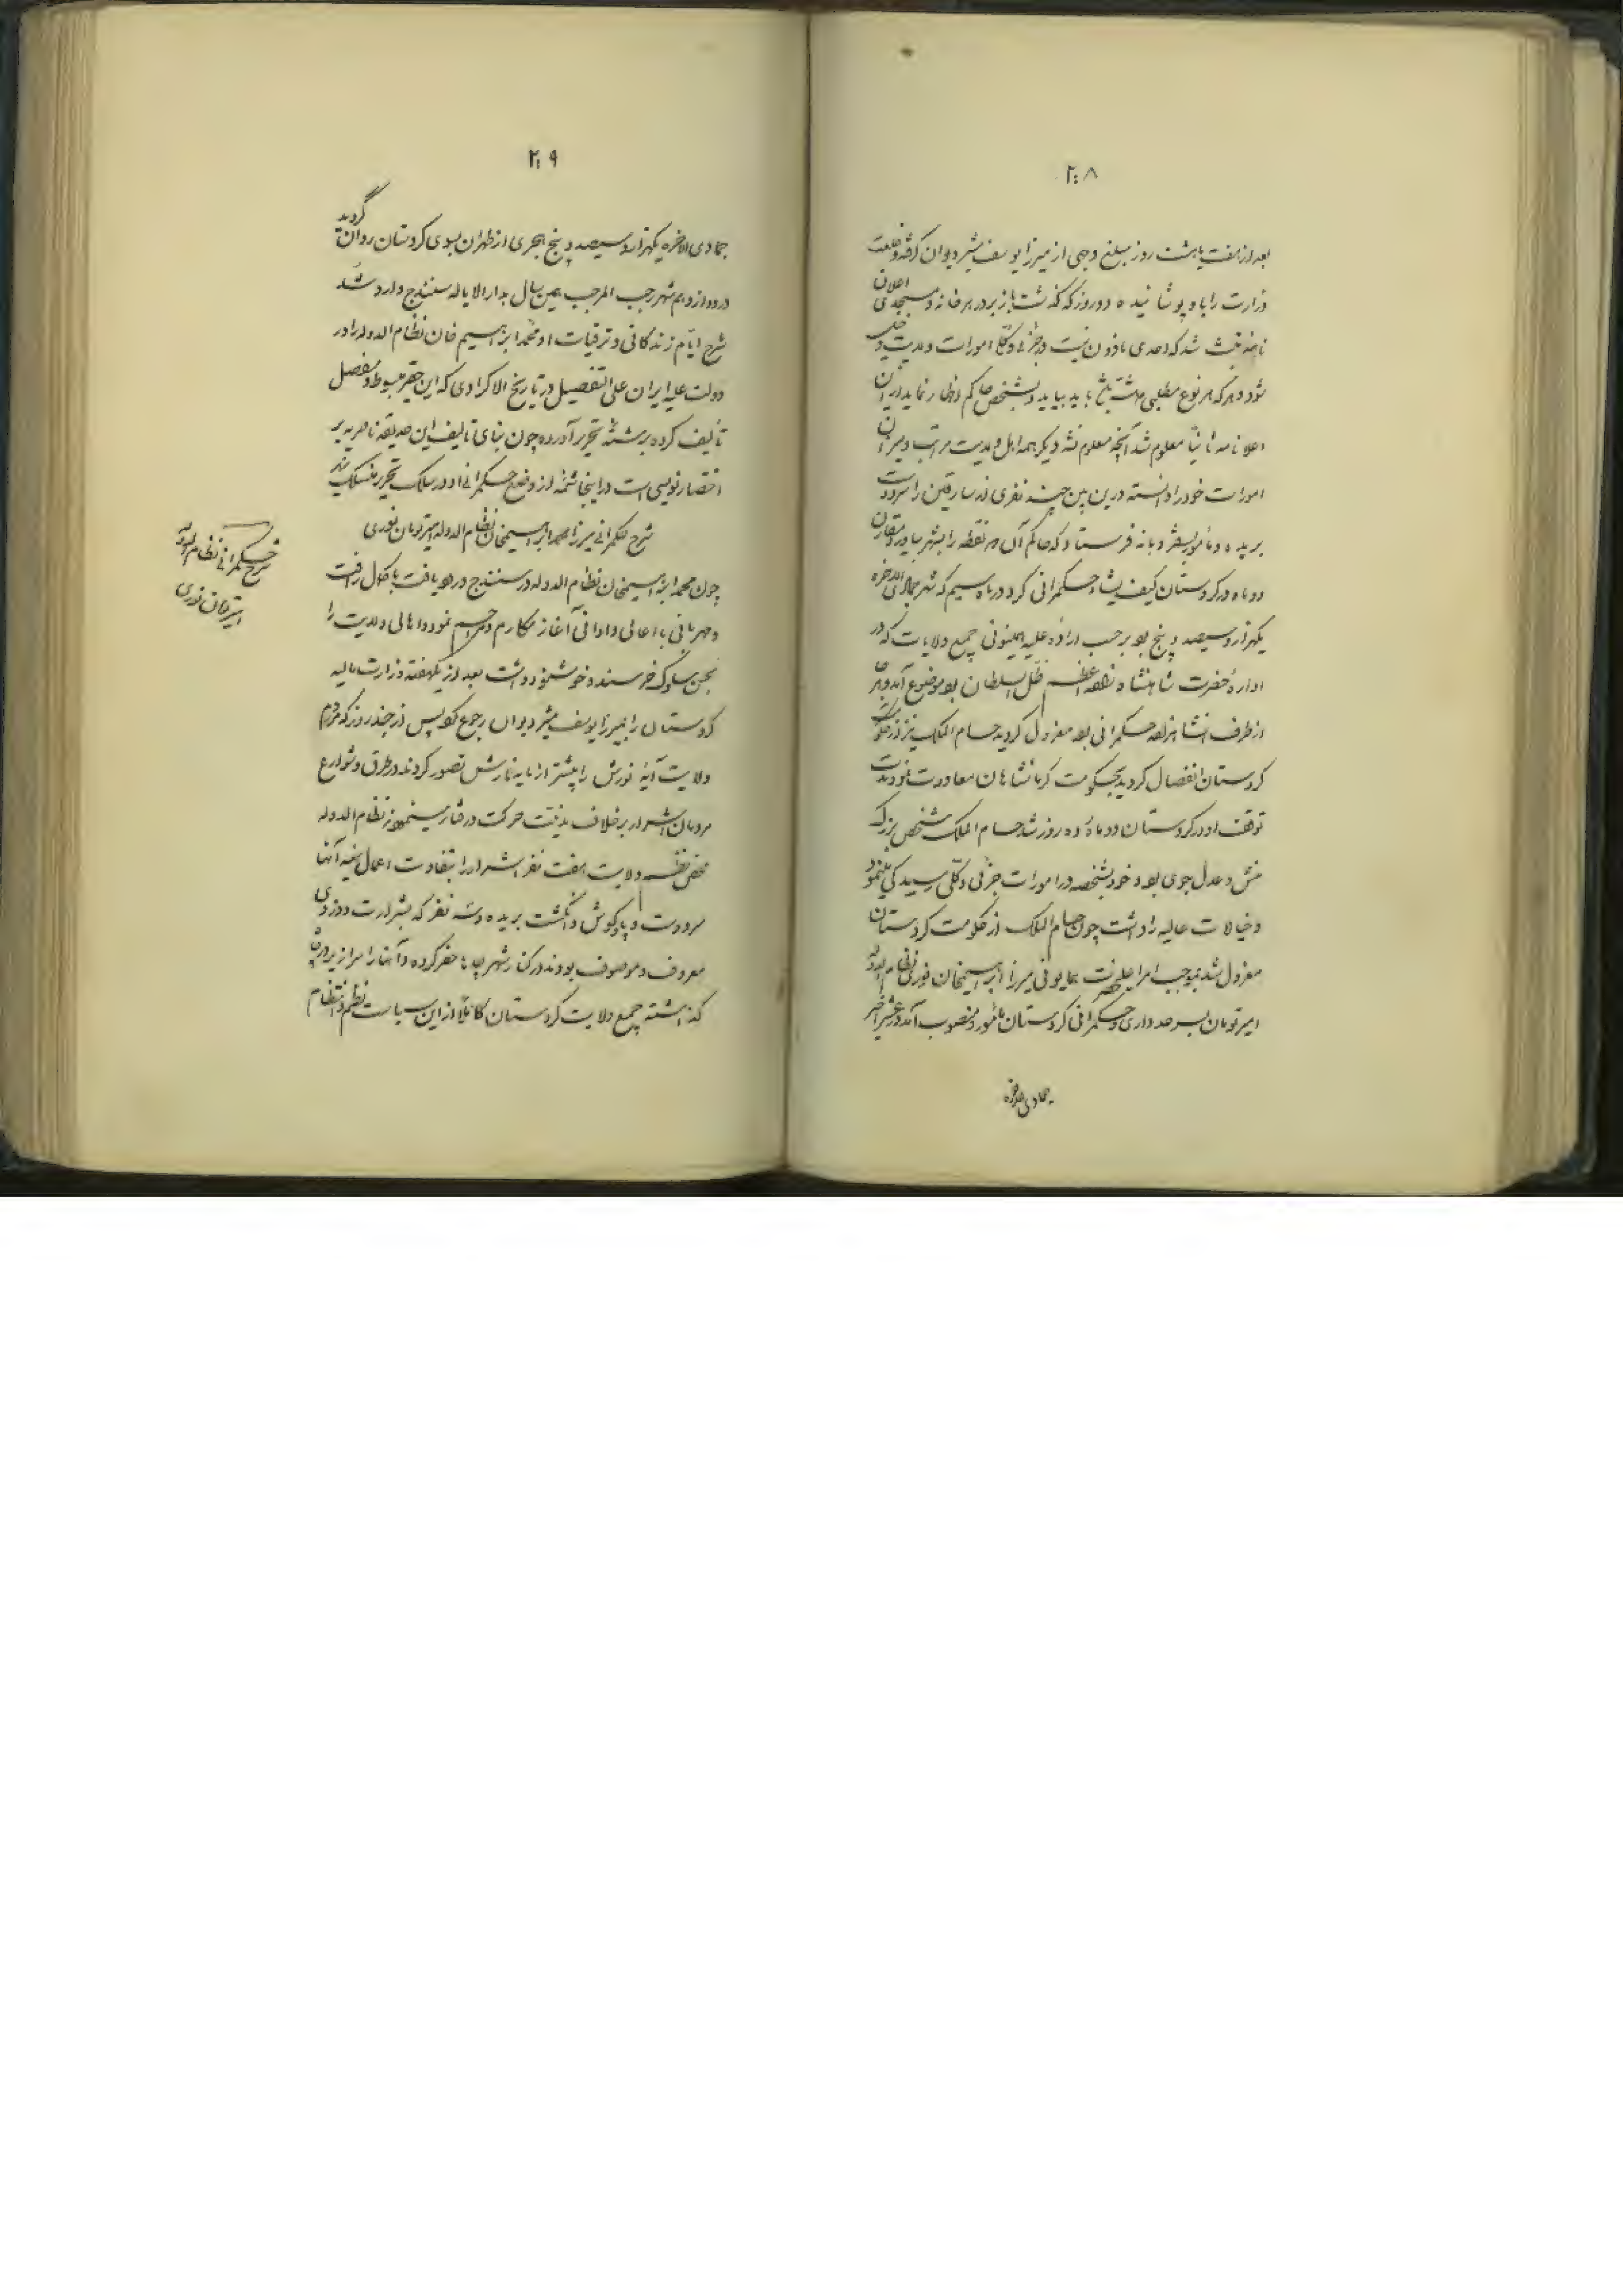 ۲۰۸
بعد از هفت یا هشت روز مبلغ وجهی از میرزا یوسف مشیر دیوان گرفته خلعت
وزارت را باو پوشانیده دو روز که گذشت باز بر در هر خانه و مسجدی اعلان
نامه شد که احدی ماذون نیست در جزئی و کلی امورات ولایت
شود و هر که هر نوع مطلبی داشته باید بیاید بشخص حاکم اظهار نماید از این
اعلانامه ثانیاً معلوم شد آنچه معلوم نشد دیگر همه اهل ولایت مراتب و میزان
امورات خود را دانسته درین بین چند نفری از سارقین را سر و دست
بریده و مأمور بسقز و بانه فرستاد که حاکم آن دو نقطه را بشهر بیاورد
دو ماه در کردستان کیف یشاء حکمرانی کرد در ماه سیم که شهر جمادی الاخره
یکهزار و سیصد و پنج بود بر حسب اراده علیه همیونی جمیع ولایات که در
اداره حضرت شاهنشاه زاده اعظم ظل السلطان بود موضوع آمد و هر جا
از طرف آنشاهزاده حکمرانی بود معزول گردید حسام الملک نیز از حکومت
کردستان انفصال گردید بحکومت کرمانشاهان معاودت نمود مدت
توقف او در کردستان دو ماه و ده روز شد حسام الملک شخص بزرگ
منش و عدل جوی بود خود بشخصه در امورات جزئی و کلی رسیدگی مینمود
و خیالات عالیه را داشت چون حسام الملک از حکومت کردستان
معزول شد بموجب امر اعلیحضرت همایونی میرزا ابراهیمخان نوری نظام الدوله
امیرتومان بسرحدداری و حکمرانی کردستان مأمور و منصوب آمد در عشر اخر
جمادی الاخره
۲۰۹
جمادی الاخره یکهزار و سیصد و پنج هجری از طهران بسوی کردستان روانه گردید
در دوازدهم شهر رجب المرجب همین سال بدار الایاله سنندج وارد شد
شرح ایام زندگانی و ترقیات او محمد ابراهیم خان نظام الدوله را در
دولت علیه ایران علی التفصیل در تاریخ الاکرادی که این حقیر مبسوط و مفصل
تألیف کرده برشته تحریر آورده چون بنای تألیف این حدیقه ناصریه بر
اختصار نویسی است در اینجا شمه از وضع حکمرانی او در سلک تحریر منسلک شد
شرح حکمرانی میرزا محمد ابراهیمخان نظام الدوله امیرتومان نوری
چون محمد ابراهیمخان نظام الدوله در سنندج ورود یافت با کمال رافت
و مهربانی با اعالی و ادانی آغاز مکارم و مراحم نمود و اهالی ولایت را
بحسن سلوک خرسند و خوشنود داشت بعد از یکهفته وزارت مالیه
کردستان را بمیرزا یوسف مشیر دیوان رجوع کرد پس از چند روز که مردم
ولایت آیه نورش را بیشتر از مایه نارش تصور کردند در طرق و شوارع
مردمان اشرار بر خلاف مدنیت حرکت و رفتار مینمودند نظام الدوله
محض نظم ولایت هفت نفر اشرار را بتفاوت اعمال شنیعه آنها
سر و دست و پا و گوش و انگشت بریده و سه نفر که بشرارت و دزدی
معروف و موصوف بودند در کنار شهر چاهها حفر کرده و آنها را سرازیر در چاه
گذاشته جمیع ولایت کردستان کاملاً از این سیاست نظم و انتظام
شرح حکمرانی نظام الدوله
امیرتومان نوری